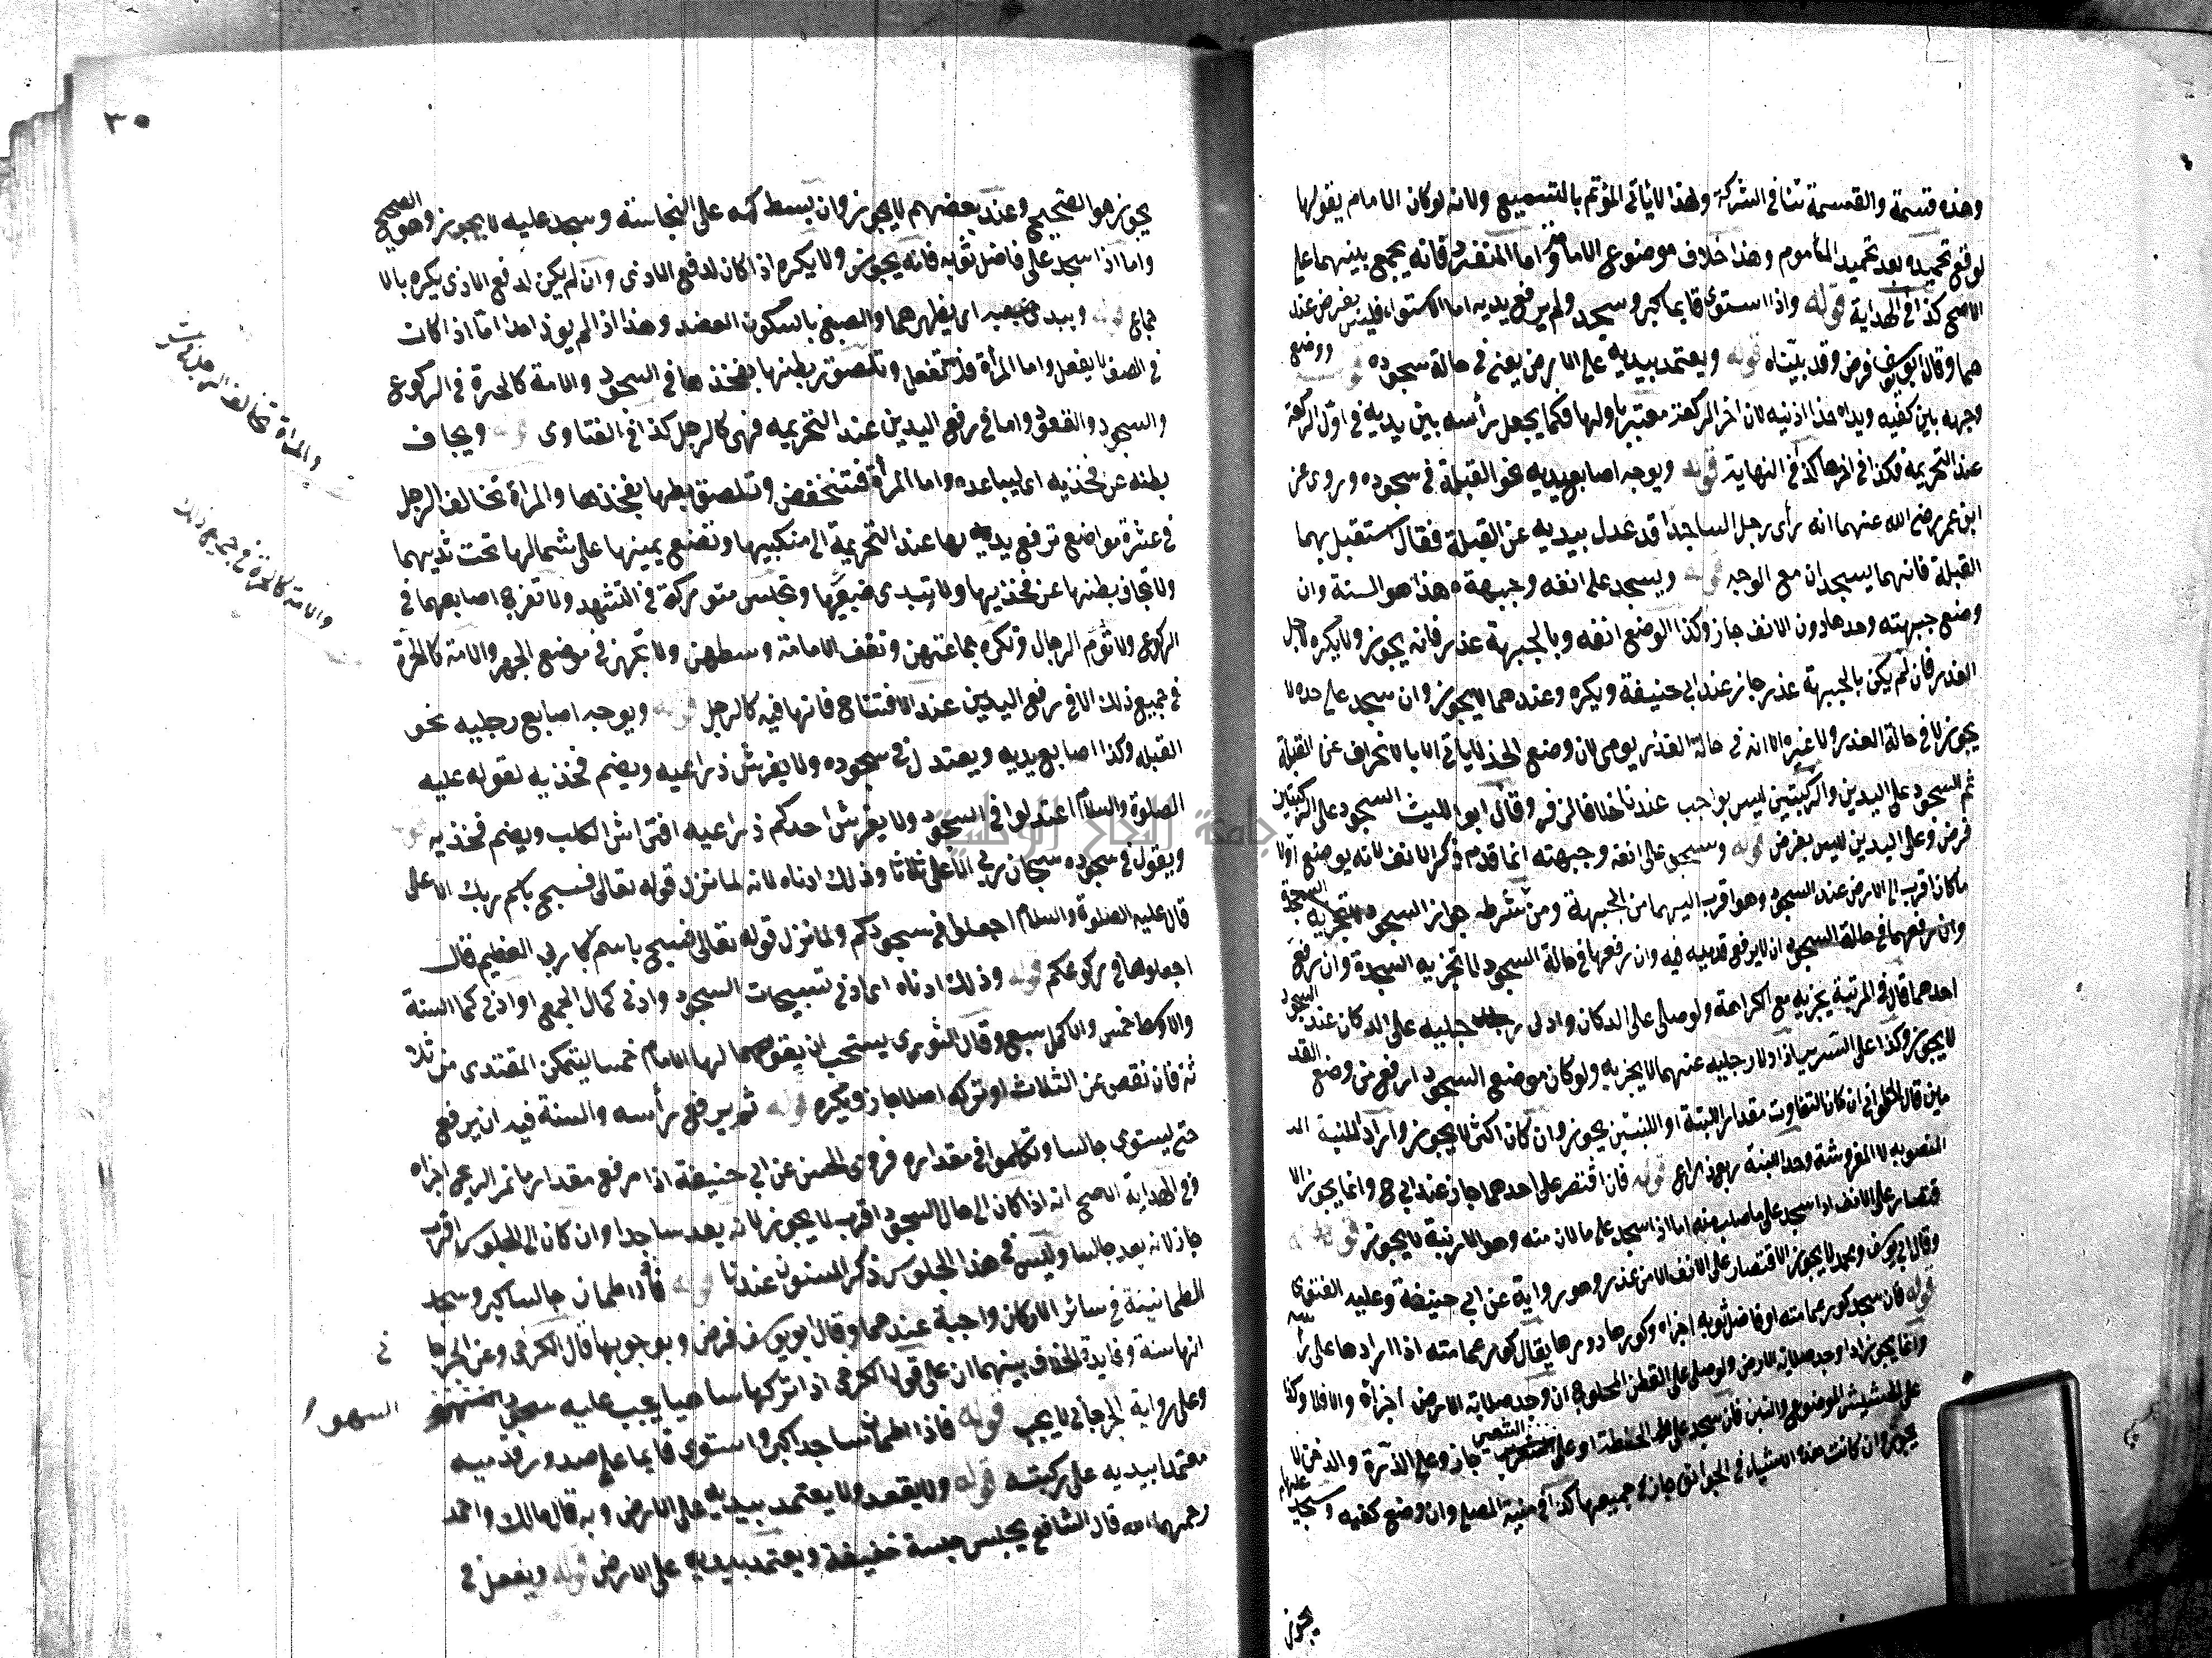 وهذه قسمة والقسمة تنافي الشركة ولهذا لا ياتي المؤتم بالتسميع ولانه لو كان الامام يقولها
لوقع تحميده بعد تحميد المأموم وهذا خلاف موضوع الامامة واما المنفرد فانه يجمع بينهما على
الاصح كذا في الهداية قوله واذا استوى قايما كبر وسجد ولم يرفع يديه اما الاستواء فليس بفرض عند
هما وقال ابو يوسف فرض وقد بيناه قوله ويعتمد بيديه على الارض يعني في حالة سجوده قوله ووضع
وجهه بين كفيه ويداه حذا اذنيه لان اخر الركعة معتبر باولها فكما يجعل رأسه بين يديه في اول الركعة
عند التحريمة فكذا في اخرها كذا في النهاية قوله ويوجه اصابع يديه نحو القبلة في سجوده وروى عن
ابن عمر رضي الله عنهما انه رأى رجلا ساجدا قد عدل بيديه عن القبلة فقال استقبل بهما
القبلة فانهما يسجدان مع الوجه قوله ويسجد على انفه وجبهته هذا هو السنة وان
وضع جبهته وحدها دون الانف جاز وكذا لو وضع انفه وبالجبهة عذر فانه يجوز ولا يكره لاجل
العذر فان لم يكن بالجبهة عذر جاز عند ابي حنيفة ويكره وعندهما لا يجوز وان سجد على خده لا
يجوز لا في حالة العذر ولا غيره الا انه في حالة العذر يومى لان وضع الخد لا ياتي الا بالانحراف عن القبلة
ثم السجود على اليدين والركبتين ليس بواجب عندنا خلافا لزفر وقال ابو الليث السجود على الركبتين
فرض وعلى اليدين ليس بفرض قوله وسجد على انفه وجبهته انما قدم ذكر الانف لانه يوضع اولا
ما كان اقرب الى الارض عند السجود وهو اقرب اليها من الجبهة ومن شرط جواز السجود
ان لا يرفع قدميه فيه وان رفعهما في حالة السجود لا تجزيه السجدة وان رفع
احدهما قال في المرتبة يجزيه مع الكراهة ولو صلى على الدكان وادلى رجليه على الدكان عند السجود
لا يجوز وكذا على السرير اذا ادلا رجليه عنهما لا يجزيه ولو كان موضع السجود ارفع من وضع القد
مين قال الحلواني ان كان التفاوت مقدار اللبنة او اللبنتين يجوز وان كان اكثر لا يجوز واراد اللبنة
المنصوبة لا المفروشة وحد اللبنة ربع ذراع قوله فان اقتصر على احدهما جاز عند ابي ح وانما يجوز الا
قتصار على الانف اذا سجد على ما صلب منه اما اذا سجد على ما لان منه وهو الارنبة لا يجوز قوله
وقال ابو يوسف ومحمد لا يجوز الاقتصار على الانف الا من عذر وهو رواية عن ابي حنيفة وعليه الفتوى
قوله فان سجد كور عمامته او فاضل ثوبه اجزاه وكورها دورها يقال كور عمامته اذا ادارها على رأسه
وانما يجوز اذا وجد صلابة الارض ولو صلى على القطن المحلوج ان وجد صلابة الارض اجزاه والا فلا وكذا
على الحشيش الموضوع والتبن فان سجد على ظهر الحنطة او على الشعير جاز وعلى الذرة والدخن لا
يجوز وان كانت هذه الاشياء في الجوالق جاز جميعها كذا في منية المصلي وان وضع كفيه وسجد عليهما
يجوز
٣٠
يجوز هو الصحيح وعند بعضهم لا يجوز وان بسط كمه على النجاسة وسجد عليه لا يجوز وهو الصحيح
واما اذا سجد على فاضل ثوبه فانه يجوز ولا يكره اذا كان لدفع الاذى وان لم يكن لدفع الاذى يكره بالا
جماع قوله ويبدي ضبعيه اي يظهرهما والضبع بالسكون العضد وهذا اذا لم يوذ احدا اما اذا كان
في الصف لا يفعل واما المرأة فلا تفعل وتلصق بطنها بفخذها في السجود والامة كالحرة في الركوع
والسجود والقعود واما في رفع اليدين عند التحريمه فهي كالرجل كذا في الفتاوى قوله ويجاف
بطنه عن فخذيه اي ليباعده واما المرأة فتنخفض وتلصق بطنها بفخذها والمراة تخالف الرجل
في عشرة مواضع ترفع يديها عند التحريمة الى منكبيها وتضع يمينها على شمالها تحت ثدييها
ولا تجاف بطنها عن فخذيها ولا تبدي ضبعيها وتجلس متوركة في التشهد ولا تفرج اصابعها في
الركوع ولا تؤم الرجال وتكره جماعتهن وتقف الامامة وسطهن ولا تجهر في موضع الجهر والامة كالحرة
في جميع ذلك الا في رفع اليدين عند الافتتاح فانها فيه كالرجل قوله ويوجه اصابع رجليه نحو
القبلة وكذا اصابع يديه ويعتدل في سجوده ولا يفرش ذراعيه ويضم فخذيه لقوله عليه
الصلوة والسلام اعتدلوا في السجود ولا يفرش احدكم ذراعيه افتراش الكلب ويضم فخذيه قوله
ويقول في سجوده سبحان ربي الاعلى ثلاثا وذلك ادناه لانه لما نزل قوله تعالى فسبح باسم ربك الاعلى
قال عليه الصلوة والسلام اجعلوا في سجودكم ولما نزل قوله تعالى فسبح باسم ربك العظيم قال
اجعلوها في ركوعكم قوله وذلك ادناه اي ادنى تسبيحات السجود وادنى كمال الجمع او ادنى كمال السنة
والاوسط خمس والاكمل سبع وقال الثوري يستحب ان يقولها الامام خمسا ليتمكن المقتدى من ثلا
ثة فان نقص عن الثلاث او تركه اصلا جاز ويكره قوله ثم يرفع رأسه والسنة فيه ان يرفع
حتى يستوي جالسا وتكلموا في مقداره فروى الحسن عن ابي حنيفة اذا رفع مقدار ما تمر الريح اجزاه
وفي الهداية الاصح انه اذا كان الى حال السجود اقرب لا يجوز لانه يعد ساجدا وان كان الى الجلوس اقرب
جاز لانه يعد جالسا وليس في هذا الجلوس ذكر المسنون عندنا قوله فاذا اطمان جالسا كبر وسجد
الطمانينة في سائر الاركان واجبة عندهما وقال ابو يوسف فرض وبوجوبها قال الكرخي وعن الجرجا
ني
انها سنة وفايدة الخلاف بينهما ان على قول الكرخي اذا تركها ساهيا يجب عليه سجود السهو
وعلى رواية الجرجاني لا يجب قوله فاذا اطمان ساجدا كبر واستوى قايما على صدور قدميه
معتمدا بيديه على ركبته قوله ولا يقعد ولا يعتمد بيديه على الارض وبه قال مالك واحمد
رحمهما الله قال الشافعي يجلس جلسة خفيفة ويعتمد بيديه على الارض قوله ويفعل في
والمراة تخالف الرجل
والامة كالحرة في جميع ذلك